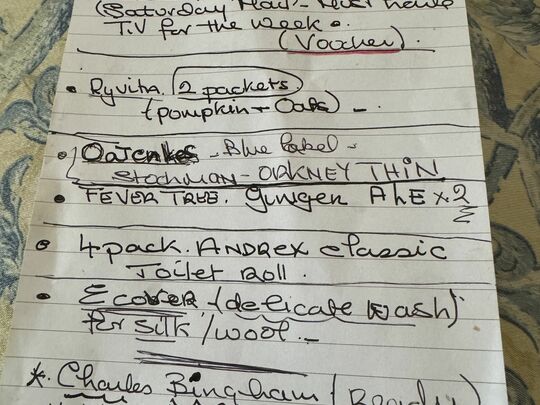 (Saturday Mail -
T.V for the week.
(Voucher)
• Ryvita. 2 packets.
(pumpkin + Oats) -.
• Oatcakes - Blue label -
Stockman - ORKNEY THIN
• FEVER TREE. Ginger AlE x 2
• 4 pack. ANDREX classic
Toilet Roll.
• Ecover. (delicate wash)
for silk / wool. -
*. Charles Bingham (Ready